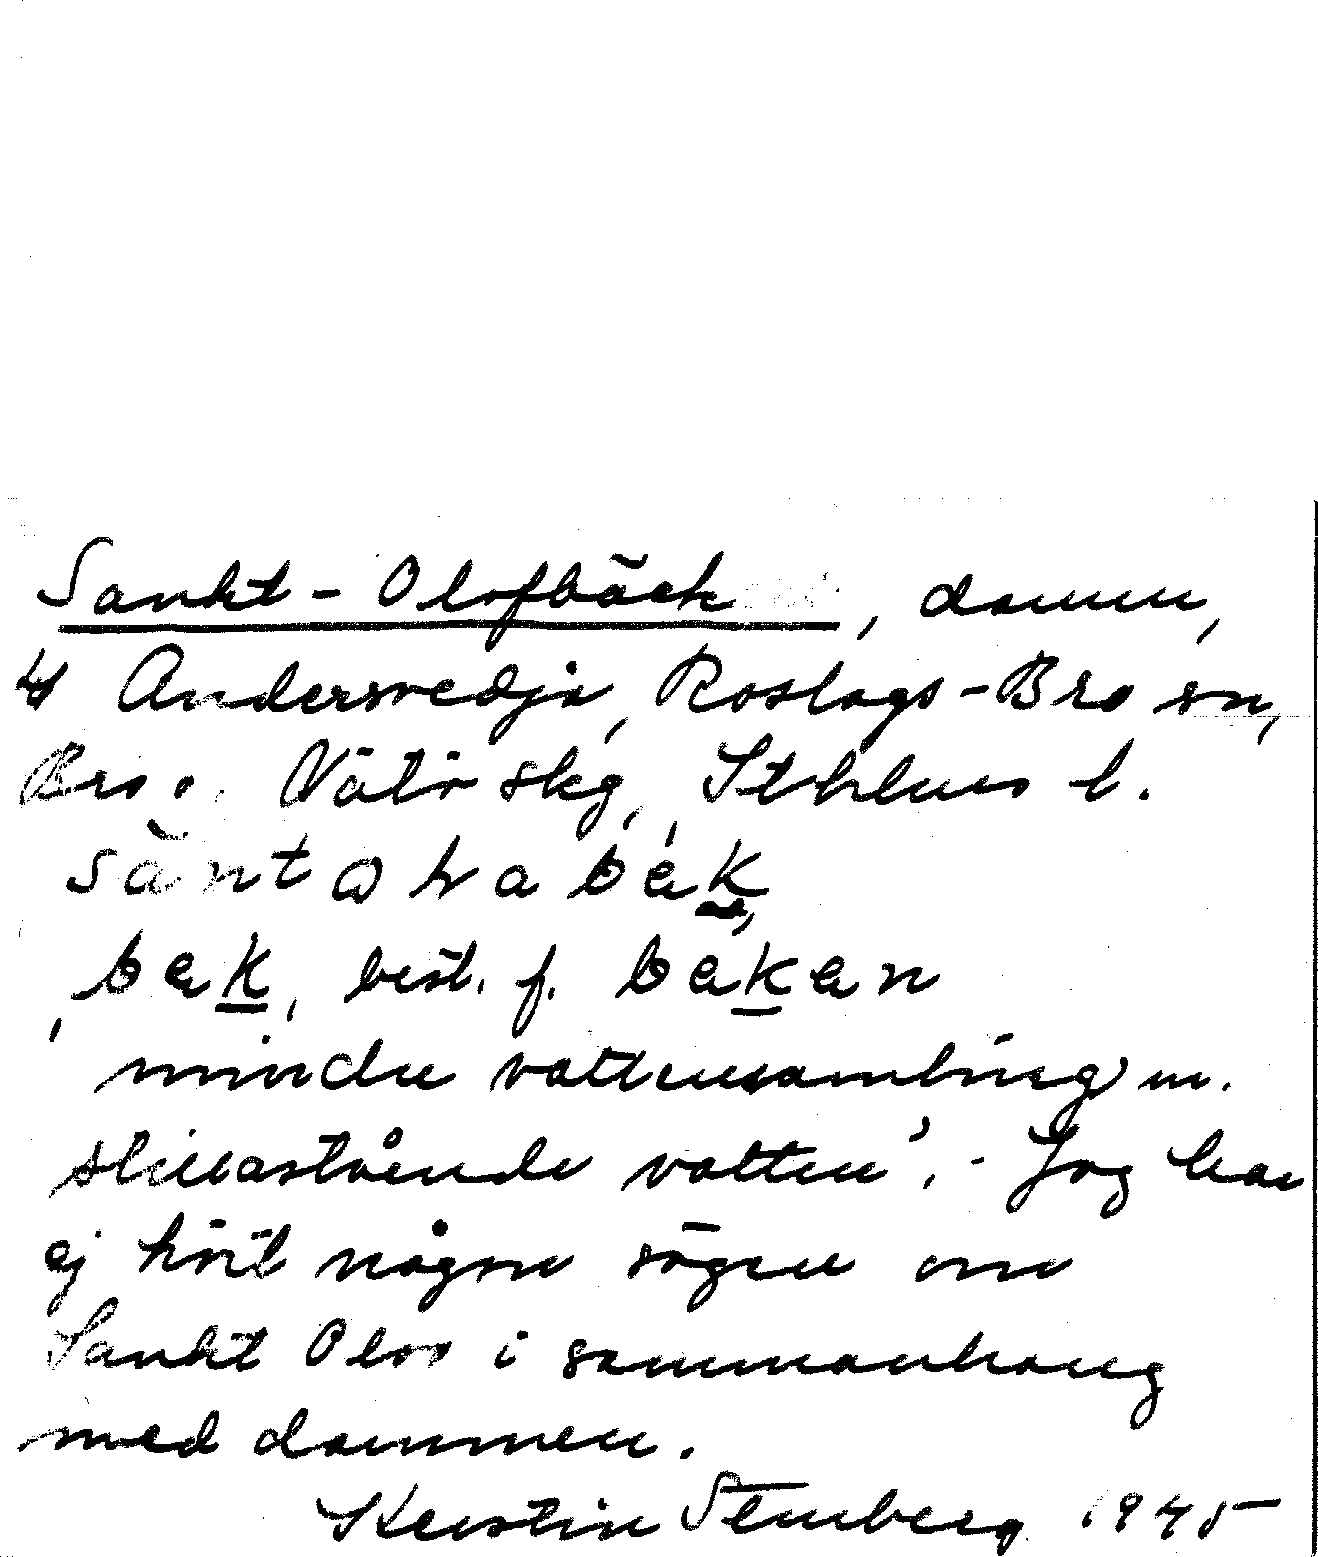 Sankt-Olofbäck, damm,
4 Andersvedja, Roslags-Bro sn,
Bro o. Vätö skg, Sthlms l.
bäk, best. f. bäken
'mindre vattensamling m.
stillastående vatten'. - Jag har
ej hört någon sägen om
Sankt Olov i sammanhang
med dammen.
Kerstin Stenberg 1945